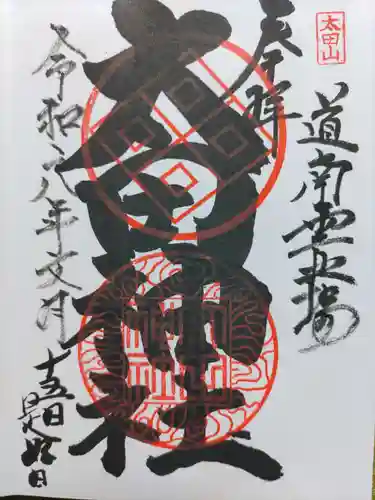 太田山
道南霊場
奉拝
太田神社
令和六八年文月
十五日
是好日